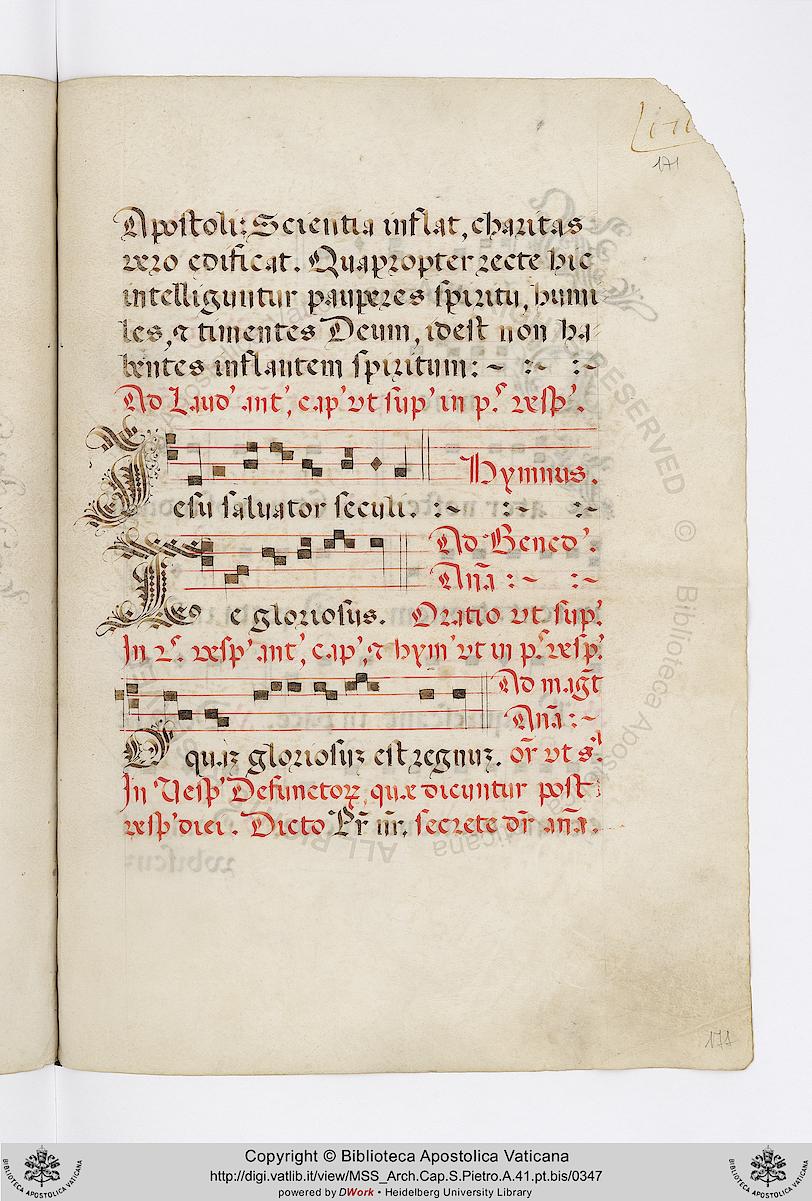 171
Apostoli: Scientia inflat, charitas
vero edificat. Quapropter recte hic
intelliguntur pauperes spiritu, humi
les, & timentes Deum, idest non ha
bentes inflantem spiritum:~ :~ :~
Ad Laud' ant', cap' vt sup' in p.s vesp'.
Hymnus.
Iesu saluator seculi. :~ :~ :~
Ad Bened'.
Aña :~ :~
Te gloriosus. Oratio vt sup'.
In 2.s vesp' ant', cap', & hym' vt in p.s vesp'.
Ad magt
Aña :~
O quaʒ gloriosuʒ est regnuʒ. or̃ vt s.a
In Vesp' Defunctorꝝ, quæ dicuntur post
vesp' diei. Dicto Pr̃ nr̃, secrete dr̃ aña.
171
Copyright © Biblioteca Apostolica Vaticana
http://digi.vatlib.it/view/MSS_Arch.Cap.S.Pietro.A.41.pt.bis/0347
powered by DWork • Heidelberg University Library
BIBLIOTECA APOSTOLICA VATICANA
BIBLIOTECA APOSTOLICA VATICANA